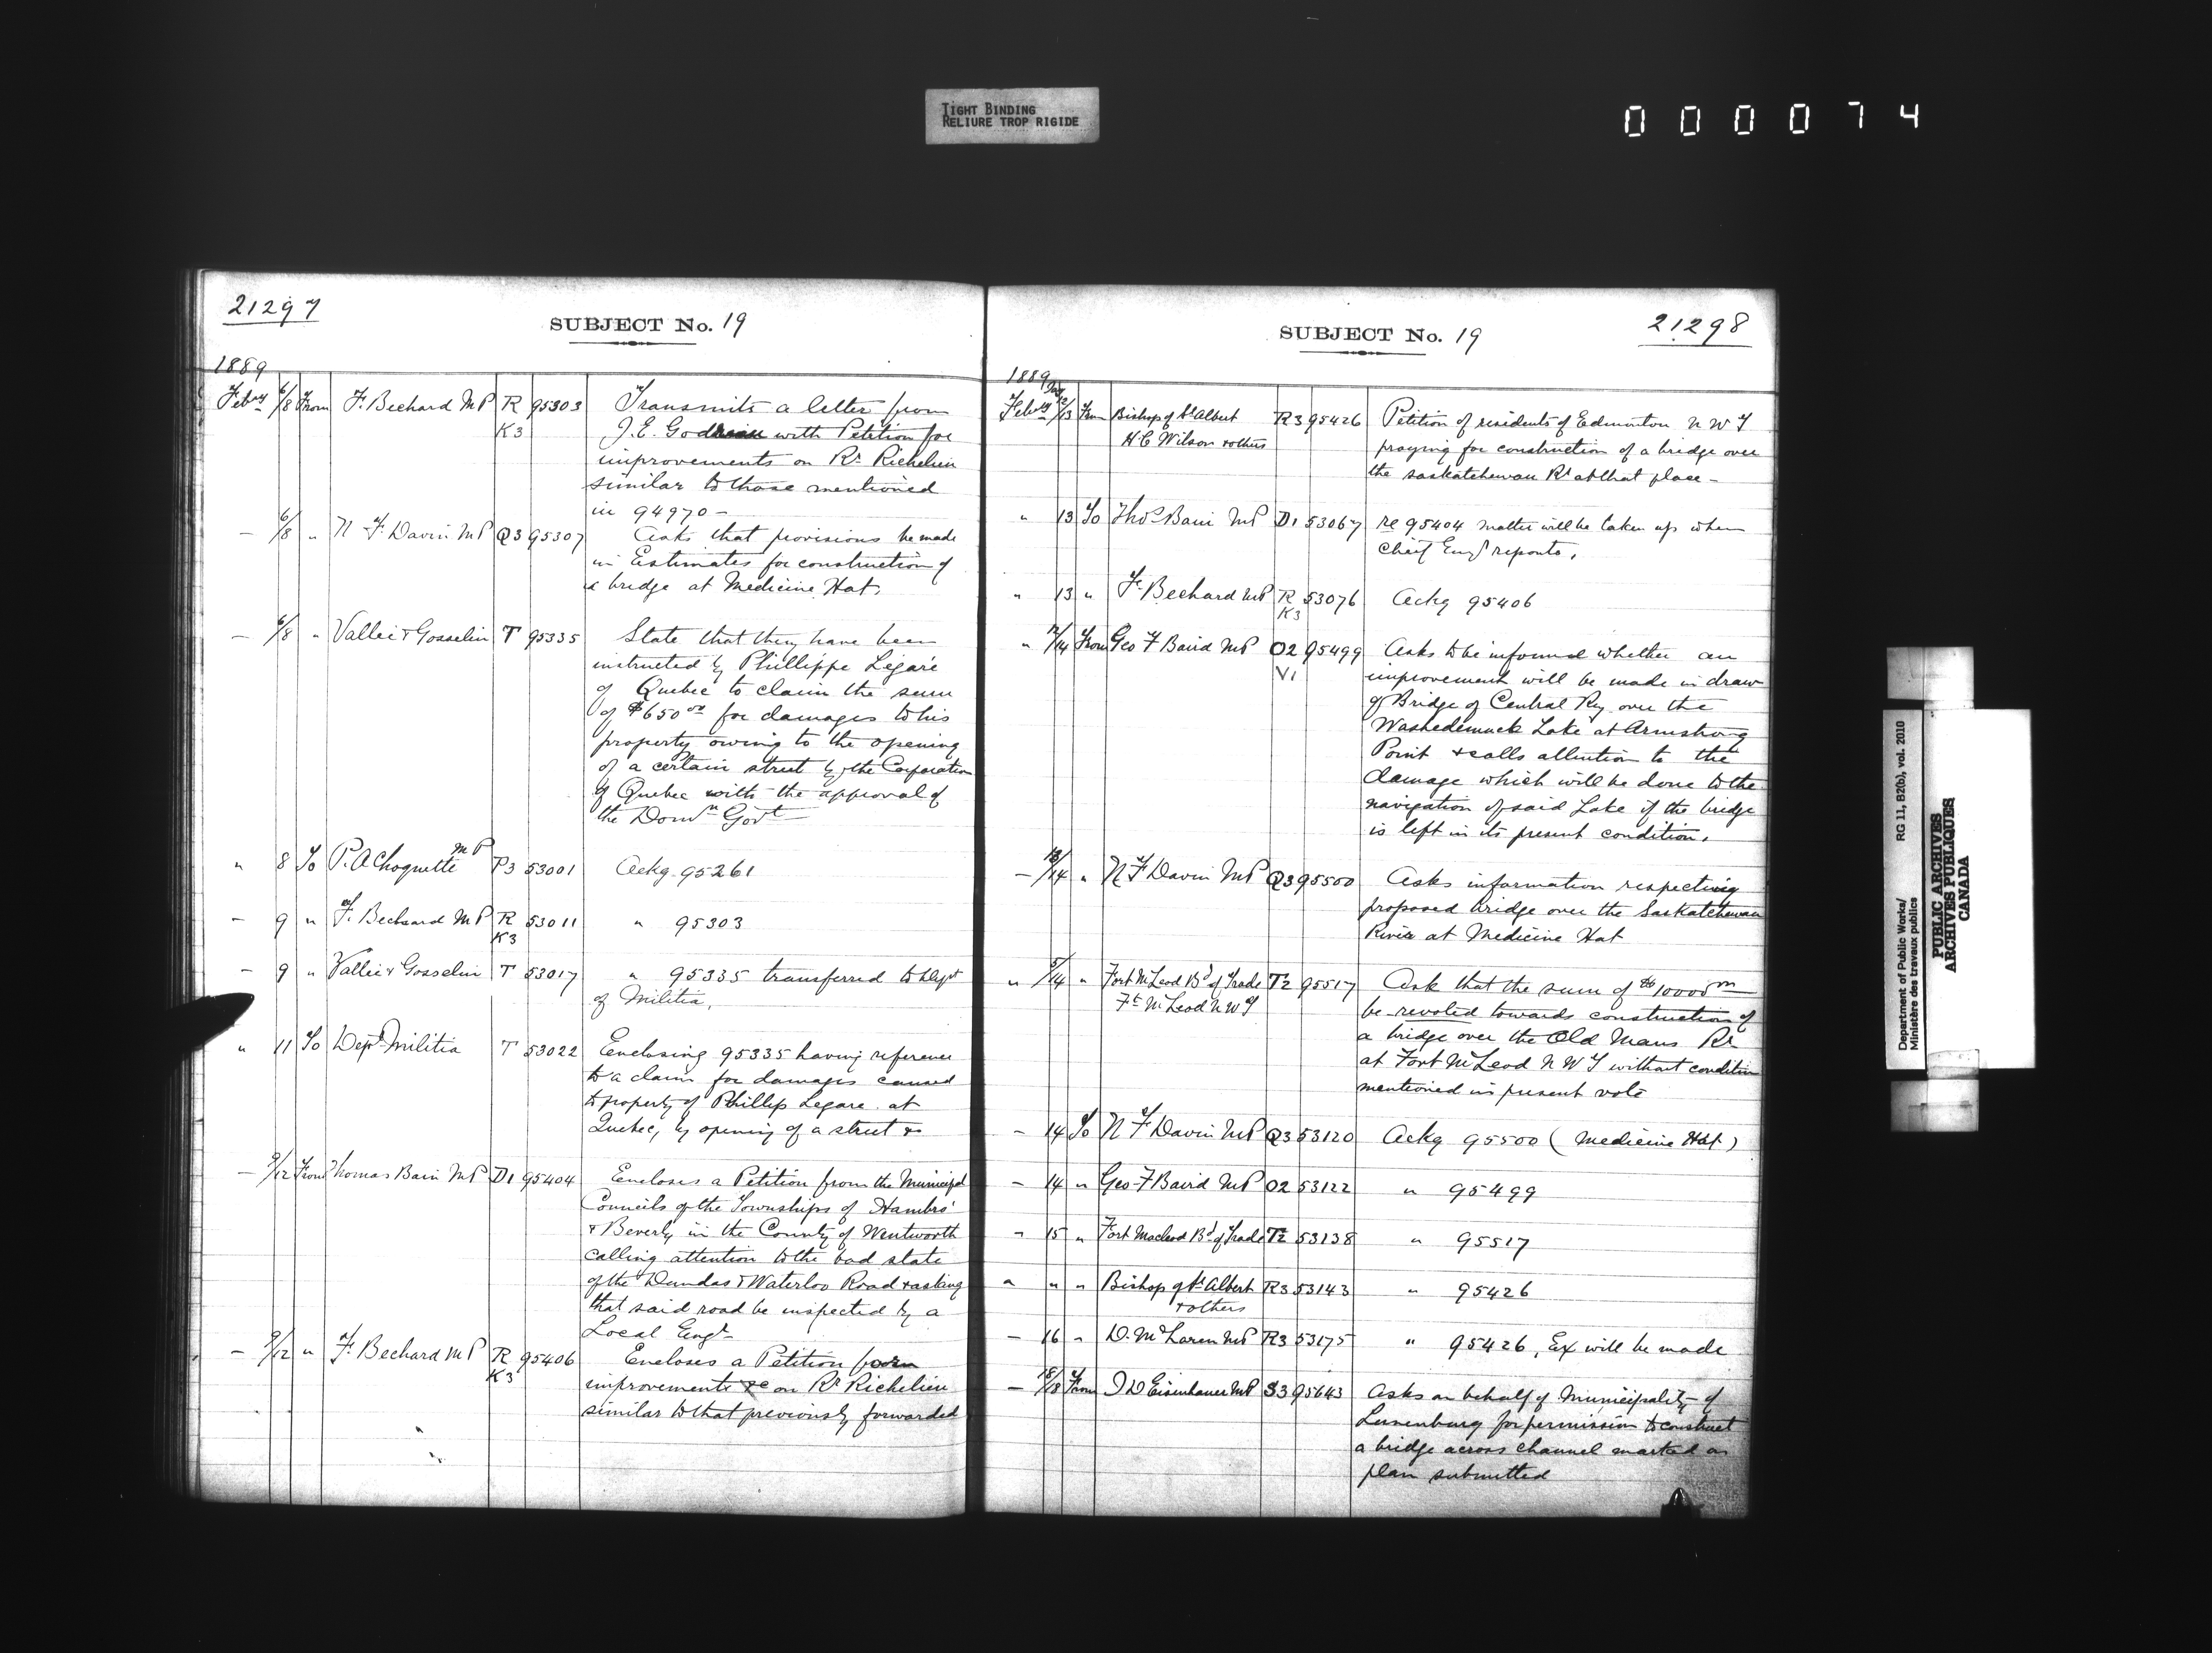 TIGHT BINDING
RELIURE TROP RIGIDE
000074
21297
SUBJECT No. 19
1889
Feby 6/8 From F. Bechard MP R K3 95303 Transmits a letter from
J. E. with Petition for
improvements on Rr Richelieu
similar to those mentioned
in 94970 -
- 6/8 " N F. Davin MP Q3 95307 Asks that provisions be made
in Estimates for construction of
a bridge at Medicine Hat.
- 6/8 " Vallée & Gosselin T 95335 State that they have been
instructed by Phillippe Légaré
of Quebec to claim the sum
of $650 00 for damages to his
property owing to the opening
of a certain street by the Corporation
of Quebec with the approval of
the Domn Govt
" 8 To P. A Choquette MP P3 53001 Ackg 95261
- 9 " F. Bechard MP R K3 53011 " 95303
- 9 " Vallée & Gosselin T 53017 " 95335 transferred to Dept
of Militia,
" 11 To Dept Militia T 53022 Enclosing 95335 having reference
to a claim for damages caused
to property of Phillip Legare at
Quebec, by opening of a street &
- 9/12 From Thomas Bain MP D1 95404 Encloses a Petition from the Municipal
Councils of the Townships of Flambro'
& Beverly in the County of Wentworth
calling attention to the bad state
of the Dundas & Waterloo Road & asking
that said road be inspected by a
Local Engr
- 9/12 " F. Bechard MP R K3 95406 Encloses a Petition for
improvements &c on Rr Richelieu
similar to that previously forwarded
SUBJECT No. 19
21298
1889
Feby 13 From Bishop of St Albert R3 95426 Petition of residents of Edmonton N W T
H C Wilson & others praying for construction of a bridge over
the Saskatchewan Rr at that place -
" 13 To Thos Bain MP D1 53067 re 95404 matter will be taken up when
Chief Engr reports.
" 13 " F. Bechard MP R K3 53076 Ackg 95406
" 12/14 From Geo F Baird MP O2 V1 95499 Asks to be informed whether an
improvement will be made in draw
of Bridge of Central Ry over the
Washedemuck Lake at Armstrong
Point & calls attention to the
damage which will be done to the
navigation of said Lake if the bridge
is left in its present condition.
- 13/14 " N F Davin MP Q3 95500 Asks information respecting
proposed bridge over the Saskatchewan
River at Medicine Hat
" 5/14 " Fort McLeod Bd of Trade T2 95517 Ask that the sum of $10000 00
Ft McLeod N W T be revoted towards construction of
a bridge over the Old Mans Rr
at Fort McLeod N W T without condition
mentioned in present vote
- 14 To N F Davin MP Q3 53120 Ackg 95500 (Medicine Hat)
- 14 " Geo F Baird MP O2 53122 " 95499
- 15 " Fort Macleod Bd of Trade T2 53138 " 95517
" " " Bishop of St Albert R3 53143 " 95426
& others
- 16 " D. McLaren MP R3 53175 " 95426, Ex will be made
- 15/18 From J D Eisenhauer MP S3 95643 Asks on behalf of Municipality of
Lunenburg for permission to construct
a bridge across channel marked on
plan submitted
Department of Public Works/ RG 11, B2(b), vol. 2010
Ministère des travaux publics
PUBLIC ARCHIVES
ARCHIVES PUBLIQUES
CANADA